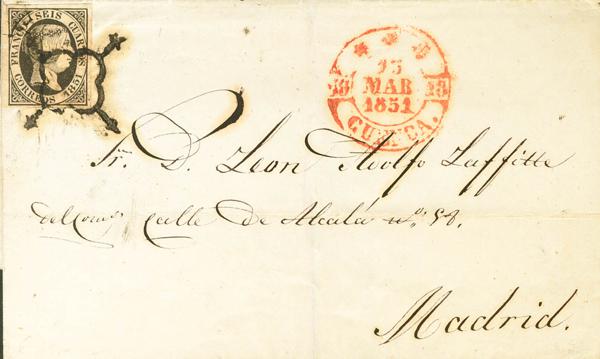 FRANCO SEIS CUARTOS
CORREOS 1851
13
MAR
1851
CUENCA.
Sr. D. Leon Adolfo Laffitte
calle de Alcalá nº 58.
Madrid.